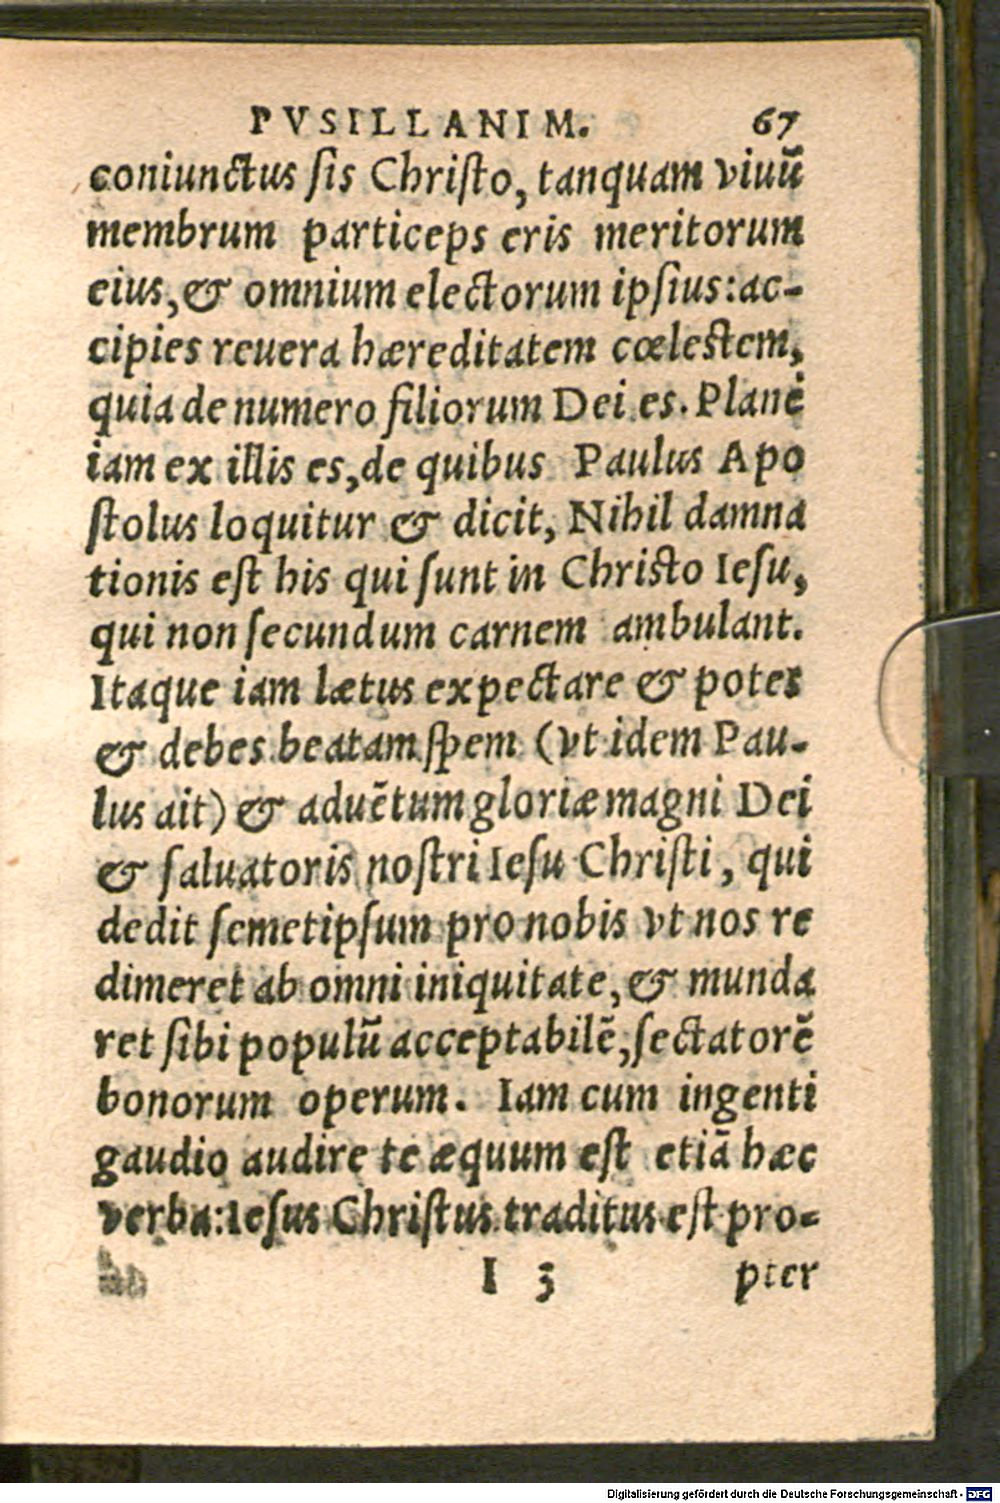 PVSILLANIM. 67
coniunctus ſis Chriſto, tanquam viuū
membrum particeps eris meritorum
eius, & omnium electorum ipſius: ac-
cipies reuera hæreditatem cœleſtem,
quia de numero filiorum Dei es. Planè
iam ex illis es, de quibus Paulus Apo
ſtolus loquitur & dicit, Nihil damna
tionis eſt his qui ſunt in Chriſto Ieſu,
qui non ſecundum carnem ambulant.
Itaque iam lætus expectare & potes
& debes beatam ſpem (vt idem Pau-
lus ait) & aduētum gloriæ magni Dei
& ſaluatoris noſtri Ieſu Chriſti, qui
dedit ſemetipſum pro nobis vt nos re
dimeret ab omni iniquitate, & munda
ret ſibi populū acceptabilē, ſectatorē
bonorum operum. Iam cum ingenti
gaudio audire te æquum eſt etiā hæc
verba: Ieſus Chriſtus traditus eſt pro-
I 3 pter
Digitalisierung gefördert durch die Deutsche Forschungsgemeinschaft - DFG